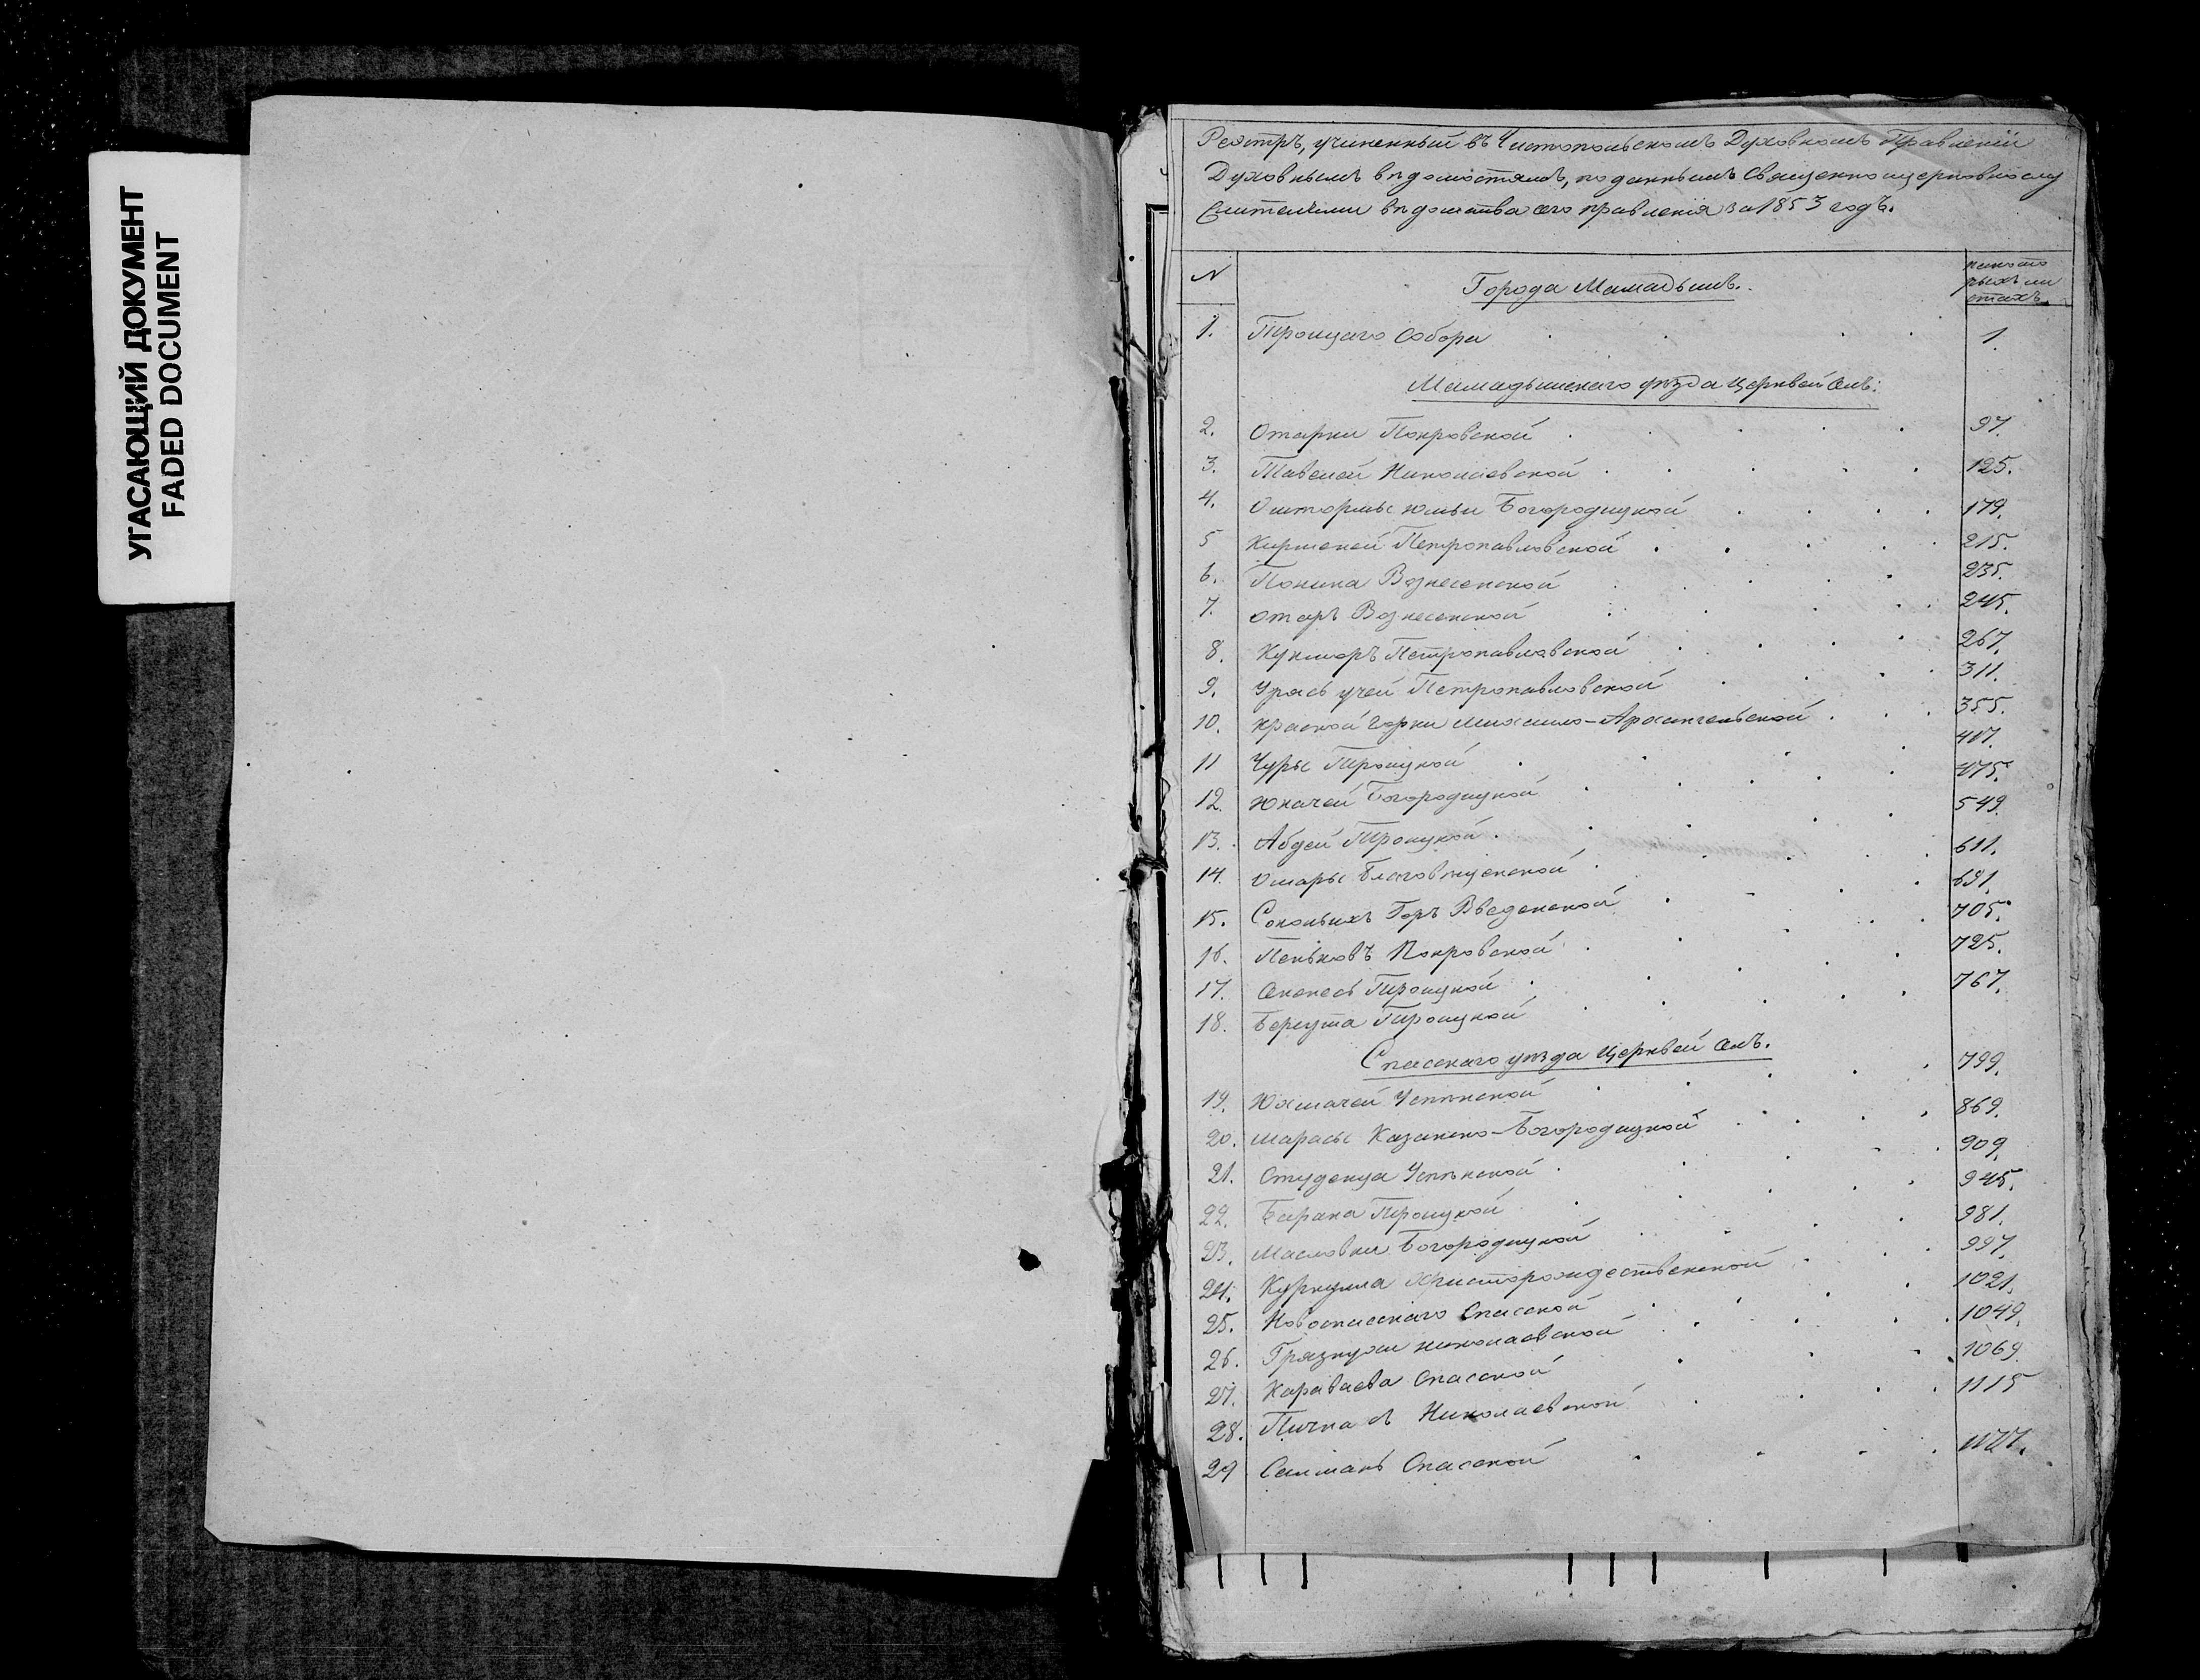 УГАСАЮЩИЙ ДОКУМЕНТ
FADED DOCUMENT
Реэстръ, учиненный въ Чистопольскомъ Духовномъ Правленіи
Духовнымъ вѣдомостямъ, поданнымъ Священноцерковнослу
жителями вѣдомства сего правленія за 1853 годъ.
№ Города Мамадышъ. на кото
рыхъ ли
стахъ.
1. Троицкаго Собора 1.
Мамадышскаго уѣзда церквей селъ:
2. Отарки Покровской 97.
3. Тавелей Николаевской 125.
4. Ошторма Юмьи Богородицкой 179.
5 Киршеней Петропавловской 215.
6. Вознесенской 235.
7. Отаръ Вознесенской 245.
8. Кукморъ Петропавловской 267.
9. Урясь учей Петропавловской 311.
10. Красной Горки Михаило-Архангельской 355.
11 Чуры Троицкой 407.
12. Юкачей Богородицкой 475.
13. Абдей Троицкой 549.
14. Омары Благовѣщенской 611.
15. Сокольихъ Горъ Введенской 691.
16. Пеньковъ Покровской 705.
17. Секенесь Троицкой 725.
18. Берсута Троицкой 767.
Спасскаго уѣзда церквей селъ.
19. Юхмачей Успенской 799.
20. Марасы Казанско-Богородицкой 869.
21. Студенца Успенской 909.
22. Барана Троицкой 945.
23. Масловки Богородицкой 981.
24. Куркуля Христорождественской 997.
25. Новоспасскаго Спасской 1021.
26. Грязнухи Николаевской 1049.
27. Караваева Спасской 1069.
28. Николаевской 1115
29 Салманъ Спасской